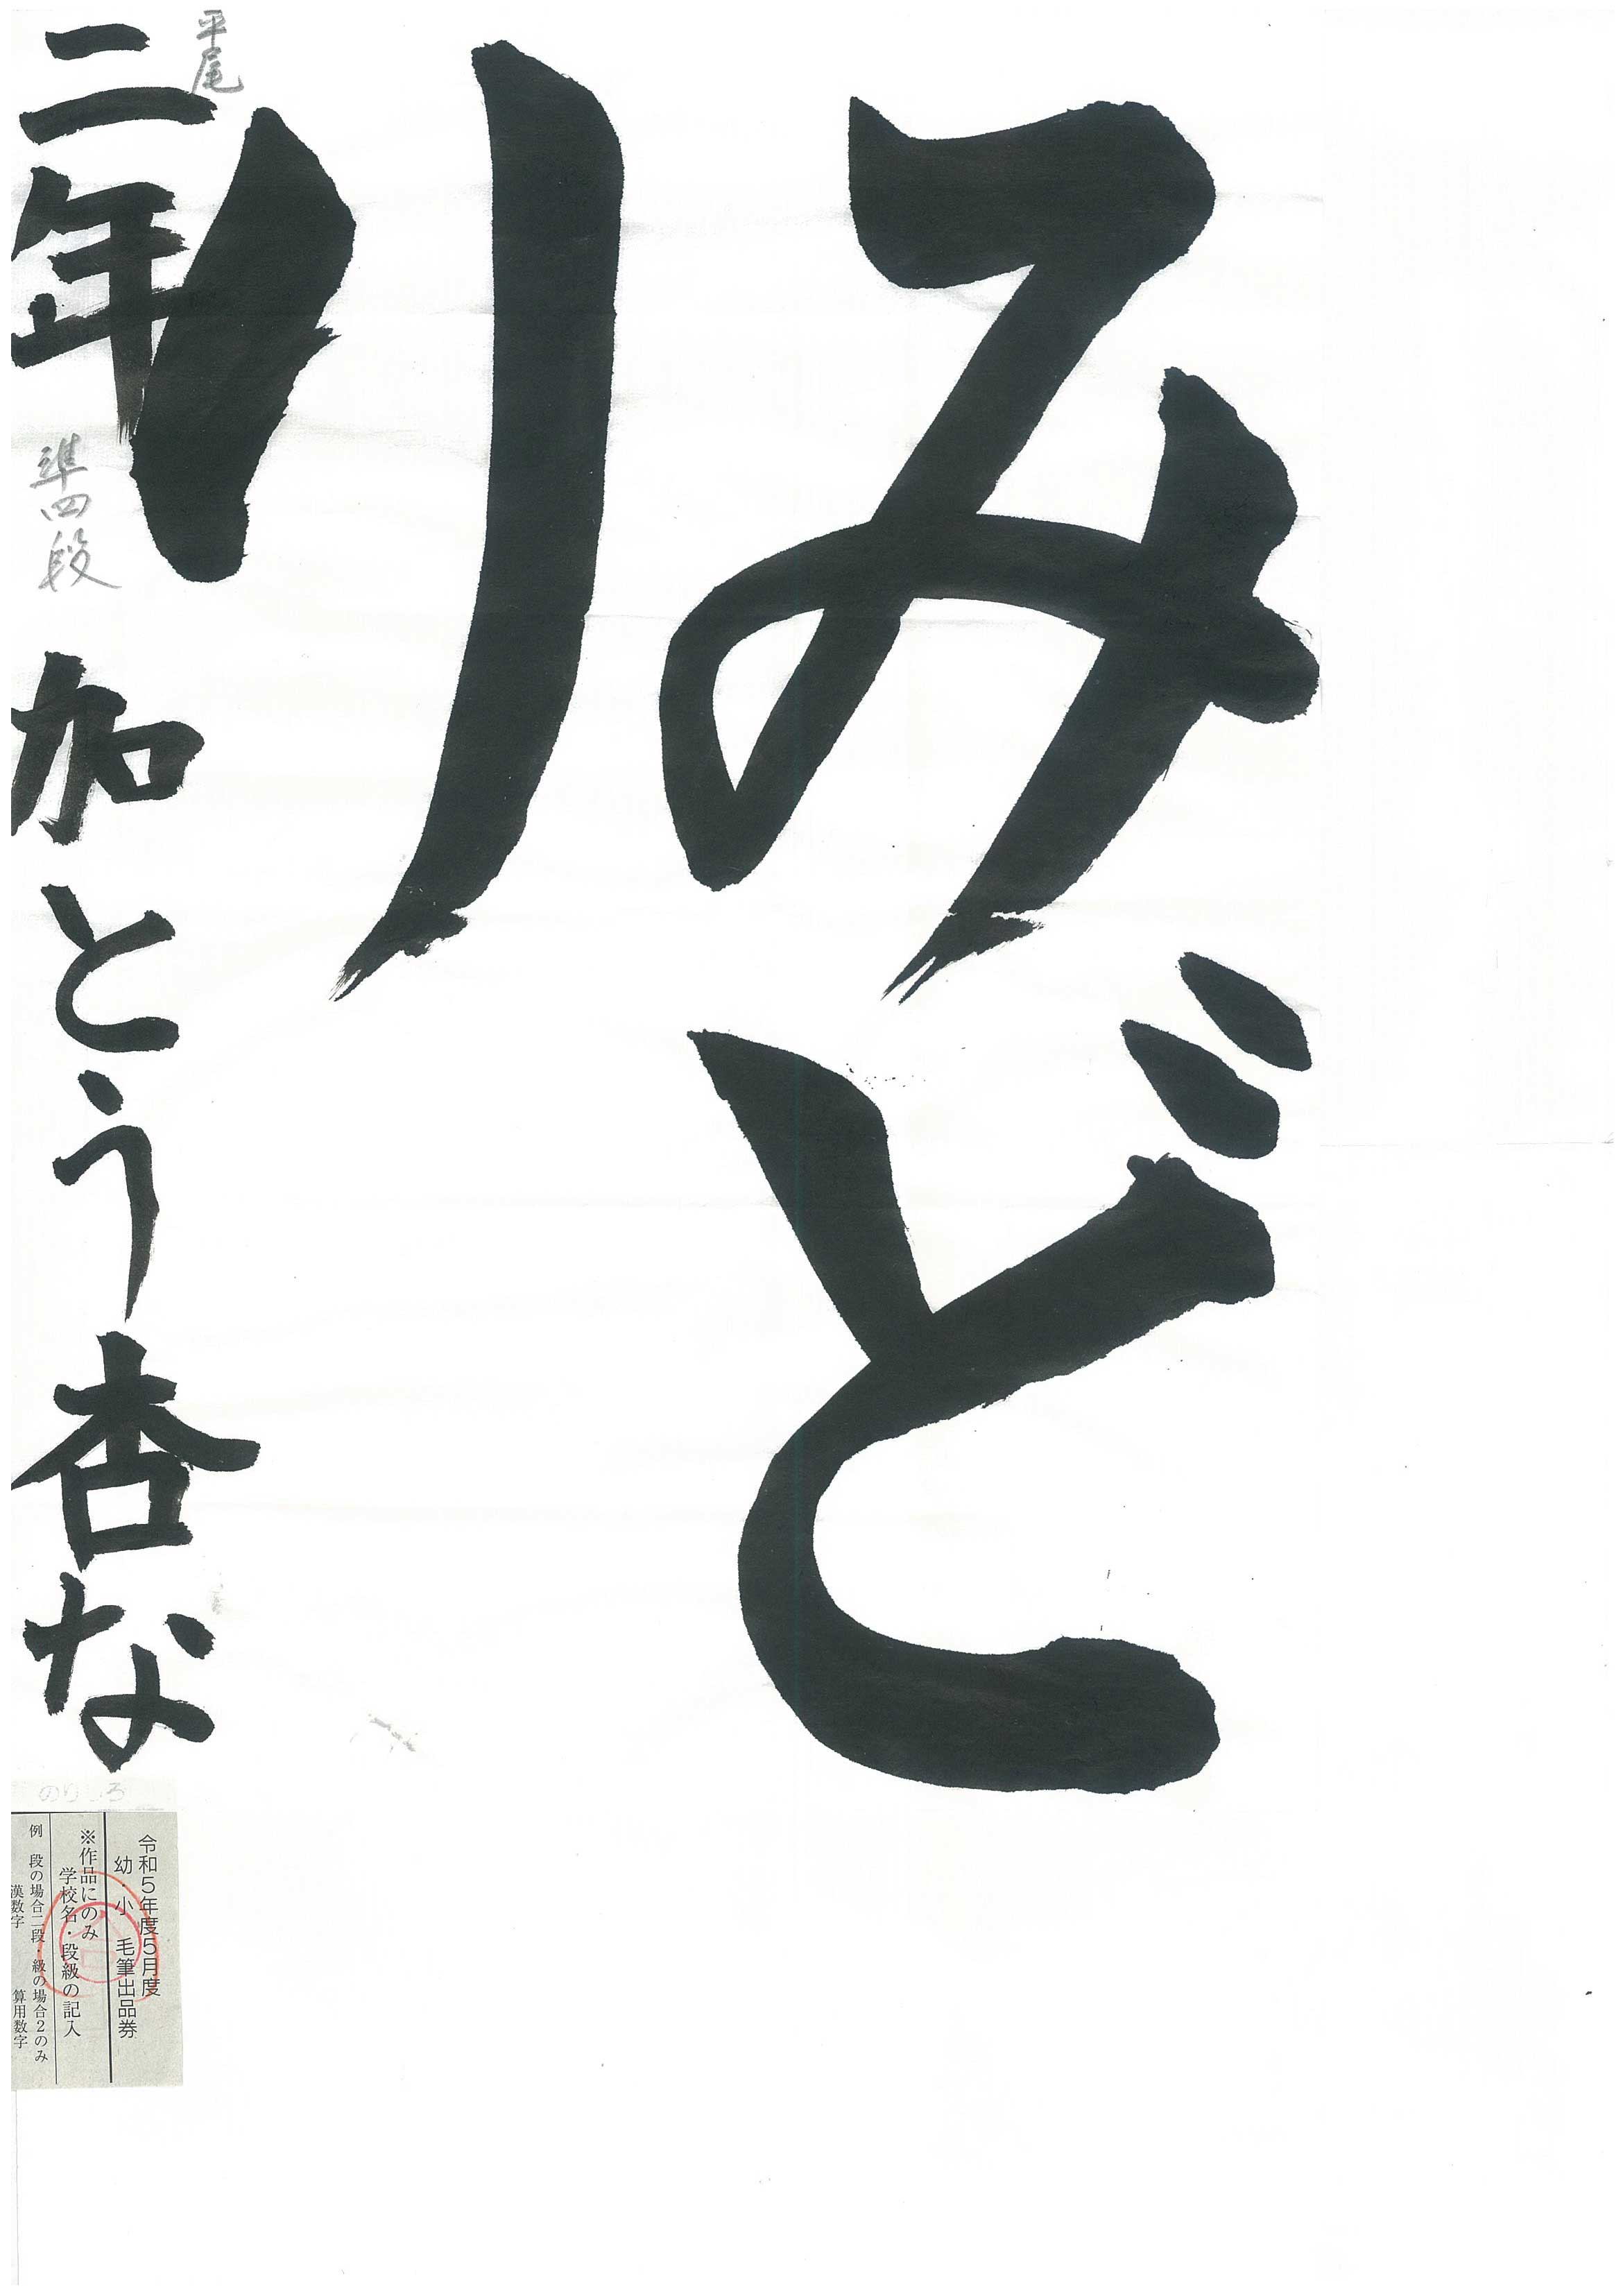 みど
り
平尾
二年 準四段 加とう杏な
のりしろ
令和5年度5月度
幼・小 毛筆出品券
※作品にのみ
学校名・段級の記入
例 段の場合二段・級の場合2のみ
漢数字 算用数字